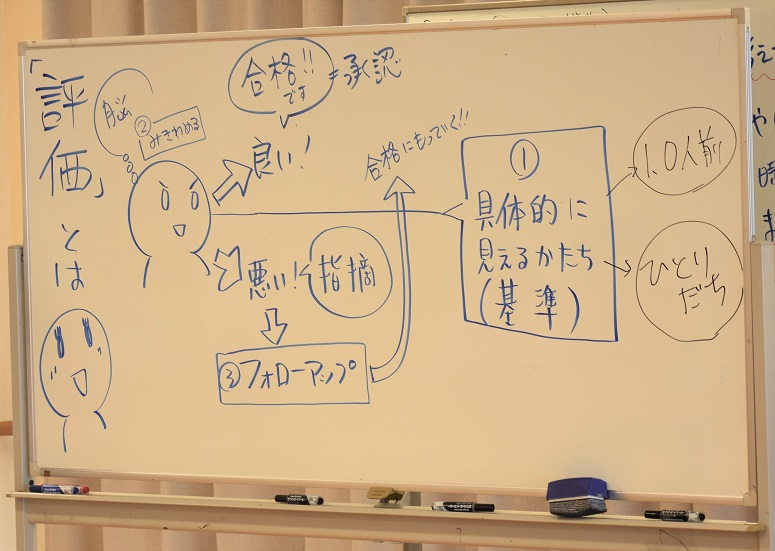 「評価」とは
脳
②
みきわめる
合格!!
です
=承認
良い!
合格にもっていく!!
悪い!
指摘
③フォローアップ
①
具体的に
見えるかたち
(基準)
1.0人前
ひとり
だち
や
時
ま